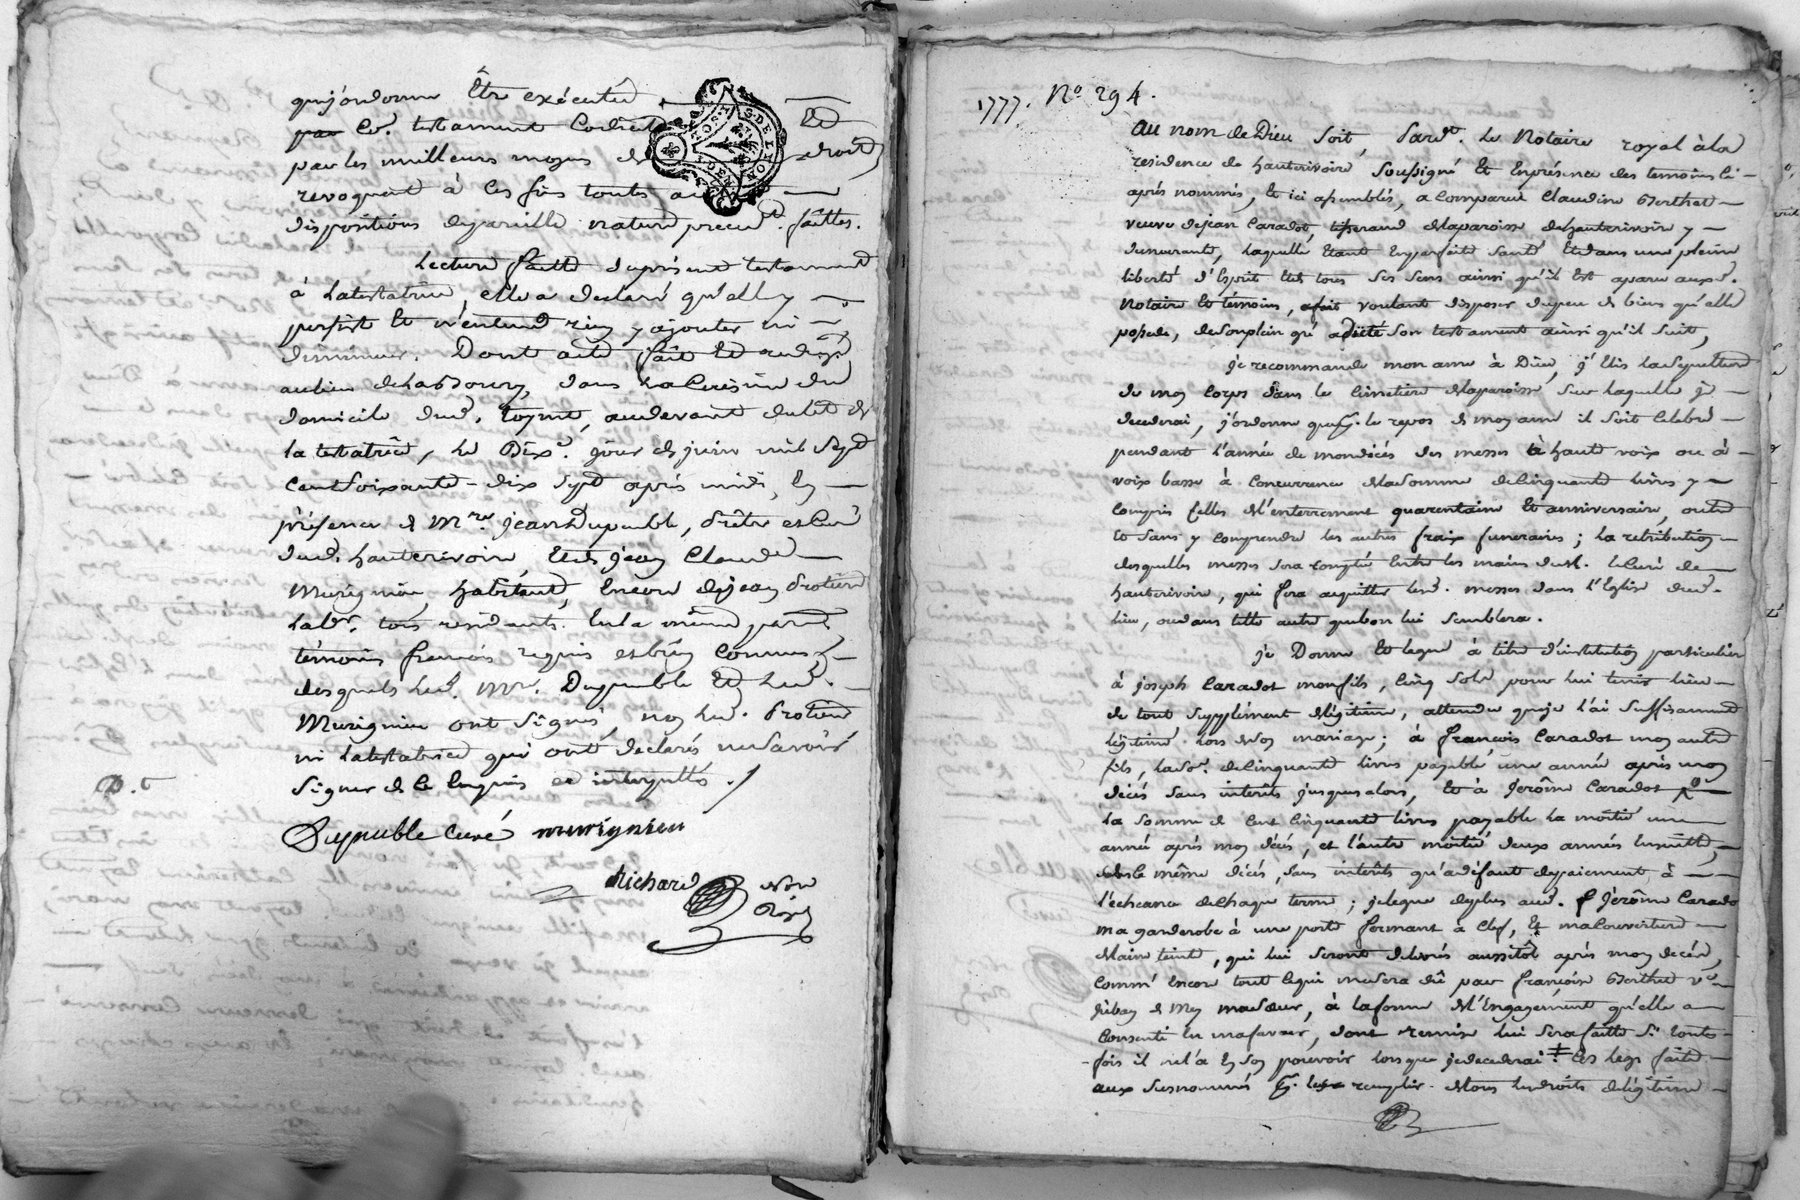 que j'ordonne Être exécuté
par led. testament codicil et
par les meilleurs moyens de droit,
revoquant à ces fins toutes
dispositions de pareille nature preced. faittes.
Lecture faitte du présent testament
à la testatrice, elle a declaré qu'elle y
persiste et n'entend rien y ajouter ni
diminuer. Dont acte fait et
au lieu de dans la cuisine du
domicile dud. au devant du lit de
la testatrice, le Dix. jour de juin mil sept
cent soixante-dix sept après midi, En
présence de Mre. jean Dupeuble, Prêtre et Curé
dud. hauterivoire, et de jean Claude
Murigneu, habitant, encore de jean
hab. tous residants. en la même paroisse
témoins requis et bien connus,
desquels led. Mre. Dupeuble et led.
Murigneu ont signé, non led.
ni la testatrice qui ont declarés ne savoir
signer de ce enquis et interpellés ./
D. C
Dupeuble curé murigneu
Richard Nore
Royal
1777. No. 294.
Au nom de Dieu soit, Pardt. le Notaire royal à la
residence de hauterivoire soussigné et En présence des temoins ci-
après nommés, et ici assemblés, a comparu Claudine Berthet
veuve de jean Caradot, tisserand de la paroisse de hauterivoire y
demeurante, laquelle étant en parfaite santé et dans une pleine
liberté d'Esprit et de tous ses sens ainsi qu'il est aparu auxd.
Notaire et témoins, voulant disposer du peu de biens qu'elle
possede, de son plein gré a dicté son testament ainsi qu'il suit,
je recommande mon ame à Dieu, j'élis la sepulture
de mon corps dans le cimetière de la paroisse sur laquelle je
decederai, j'ordonne que p. le repos de mon ame il soit celebré
pendant l'année de mon décés des messes à haute voix ou à
voix basse à concurrence de la somme de cinquante livres y
compris celles de l'enterrement quarentaine et anniversaire, outre
et sans y comprendre les autres fraix funeraires; la retribution
desquelles messes sera comptée entre les mains de sr. le Curé de
hauterivoire, qui fera acquitter lesd. messes dans l'Eglise dud.
lieu, ou dans telle autre que bon lui semblera.
je Donne et legue à titre d'institution particulière
à joseph Caradot mon fils, cinq sols pour lui tenir lieu
de tout supplément de légitime, attendu que je l'ai suffisament
légitimé lors de son mariage; à françois Caradot mon autre
fils, la so. de cinquante livres payable une année après mon
décés sans interêts jusques alors, et à Jerôme Caradot
la somme de cent cinquante livres payable la moitié une
année après mon décés, et l'autre moitié deux années ensuitte,
dud. même décés, sans interêts qu'à défaut de paiement à
l'écheance de chaque terme; je legue de plus aud. Jerôme Caradot
ma garderobe à une porte fermant à clef, et ma couverture
de laine teinte, qui lui seront delivrés aussitôt après mon decés,
comm' encore tout ce qui me sera dû par françoise Berthet ve.
ma sœur, à la forme de l'Engagement qu'elle a
consenti en ma faveur, dont remise lui sera faitte si toute-
fois il ne l'a en son pouvoir lorsque je decederai. Ces legs faits
aux susnommés p. les remplir de tous les droits de légitime